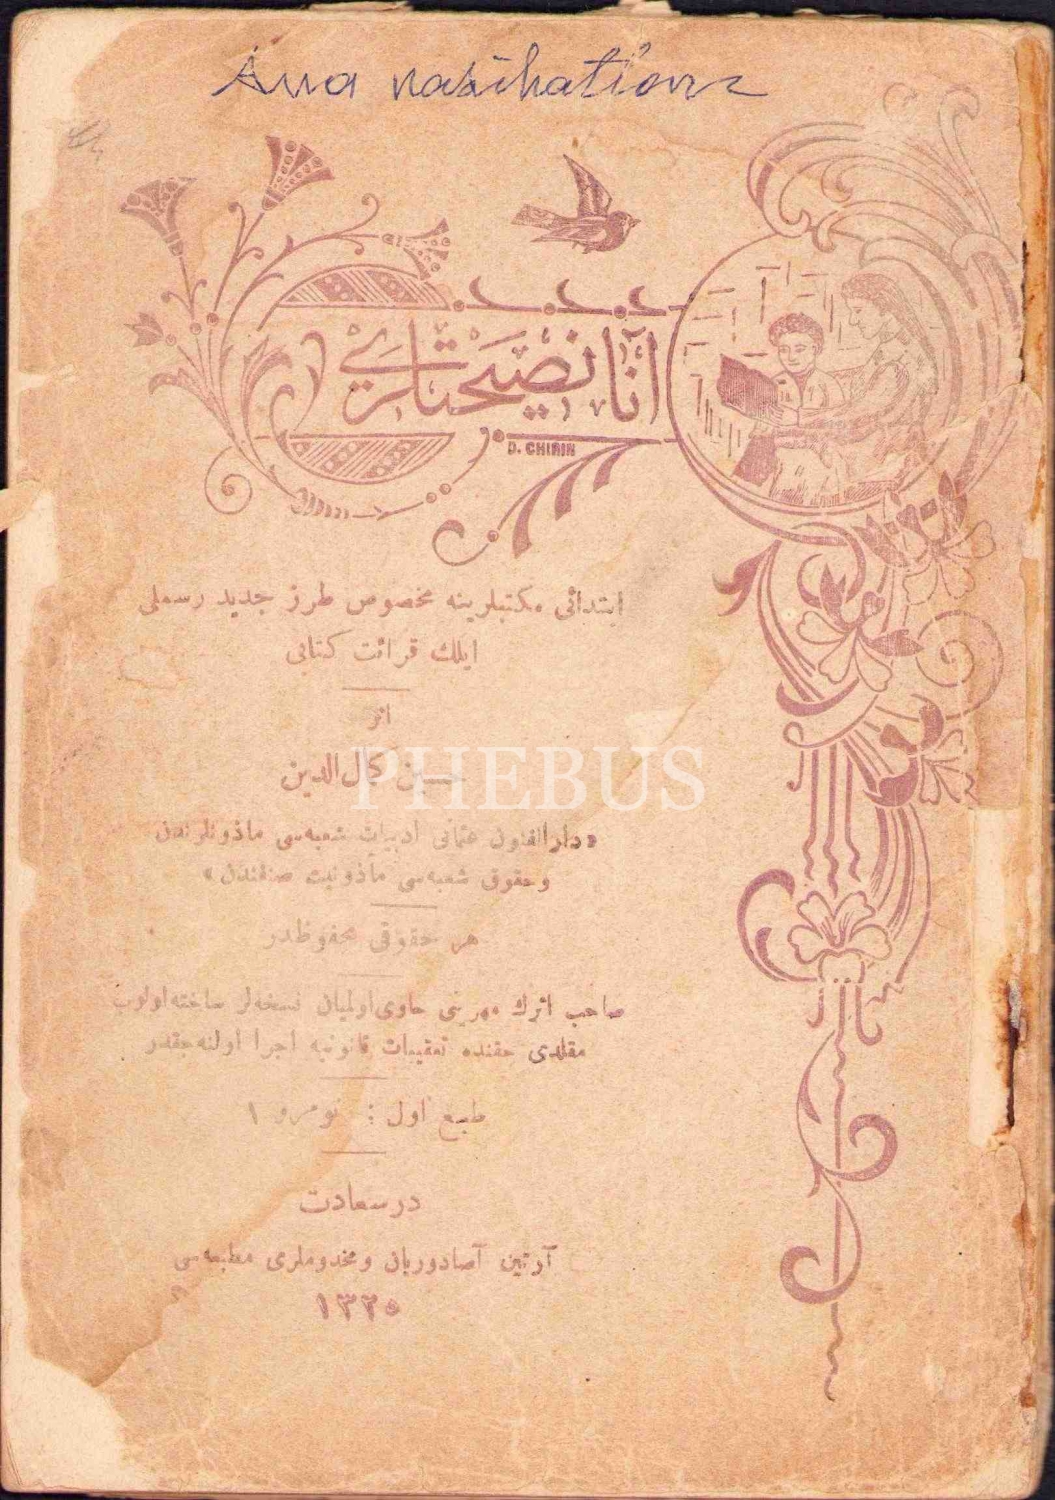 Ana nasihationz
آنا نصیحتلری
D. CHIRIN
ابتدائی مکتبلرینه مخصوص طرز جدید رسملی
ایلك قرائت کتابی
اثر
حسین کمال الدین
PHEBUS
«دارالفنون عثمانی ادبیات شعبه‌سی مأذونلرندن
وحقوق شعبه‌سی مأذونیت صنفندن»
هر حقوقی محفوظدر
صاحب اثرك مهرینی حاوی اولمیان نسخه‌لر ساخته اولوب
مقلدی حقنده تعقیبات قانونیه اجرا اولنه‌جقدر
طبع اول : نومرو ۱
درسعادت
آرتین آصادوریان ومخدوملری مطبعه‌سی
۱۳۲۵